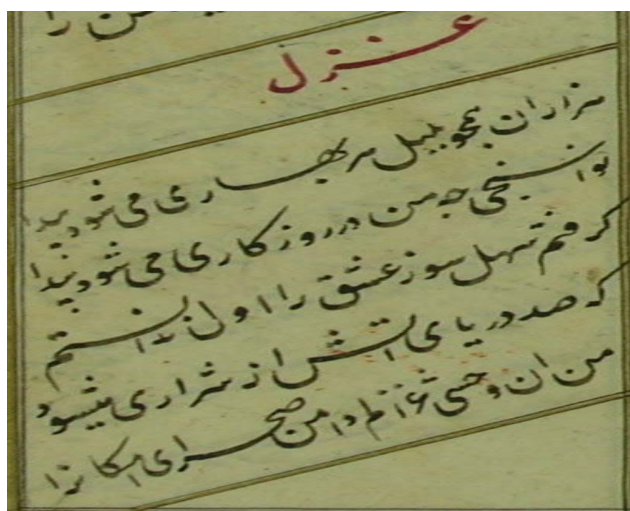 غزل
هزاران همچو بلبل هر بهاری می شود پیدا
نوا سنجی چو من در روزکاری می شود پیدا
کرفتم سهل سوز عشق را اول ندانستم
که صد دریای اتش از شراری میشود
من ان وحشی غزالم دامن صحرای امکانرا